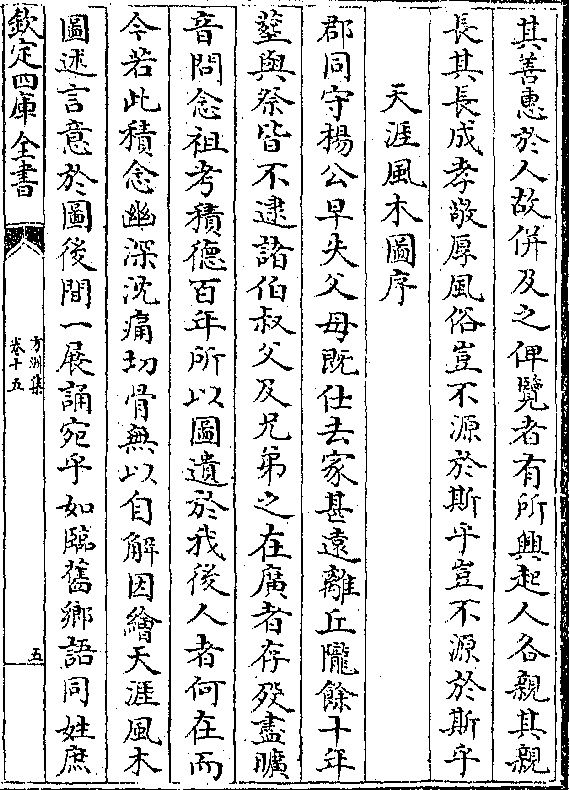 其善惠於人故併及之俾覽者有所興起人各親其親
長其長成孝敬厚風俗豈不源於斯乎豈不源於斯乎
天涯風木圖序
郡同守楊公早失父母既仕去家甚遠離丘隴餘十年
塟與祭皆不逮諸伯叔父及兄弟之在廣者存殁盡曠
音問念祖考積德百年所以圖遺於我後人者何在而
今若此積念幽深沈痛切骨無以自解因繪天涯風木
圖述言意於圖後間一展誦宛乎如臨舊鄉語同姓庶
欽定四庫全書
方洲集
卷十五
五